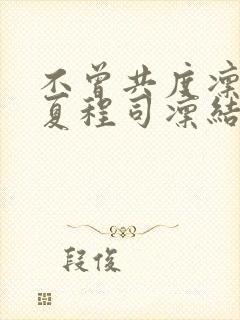 不曾共度凛
夏程司凛结
段俊